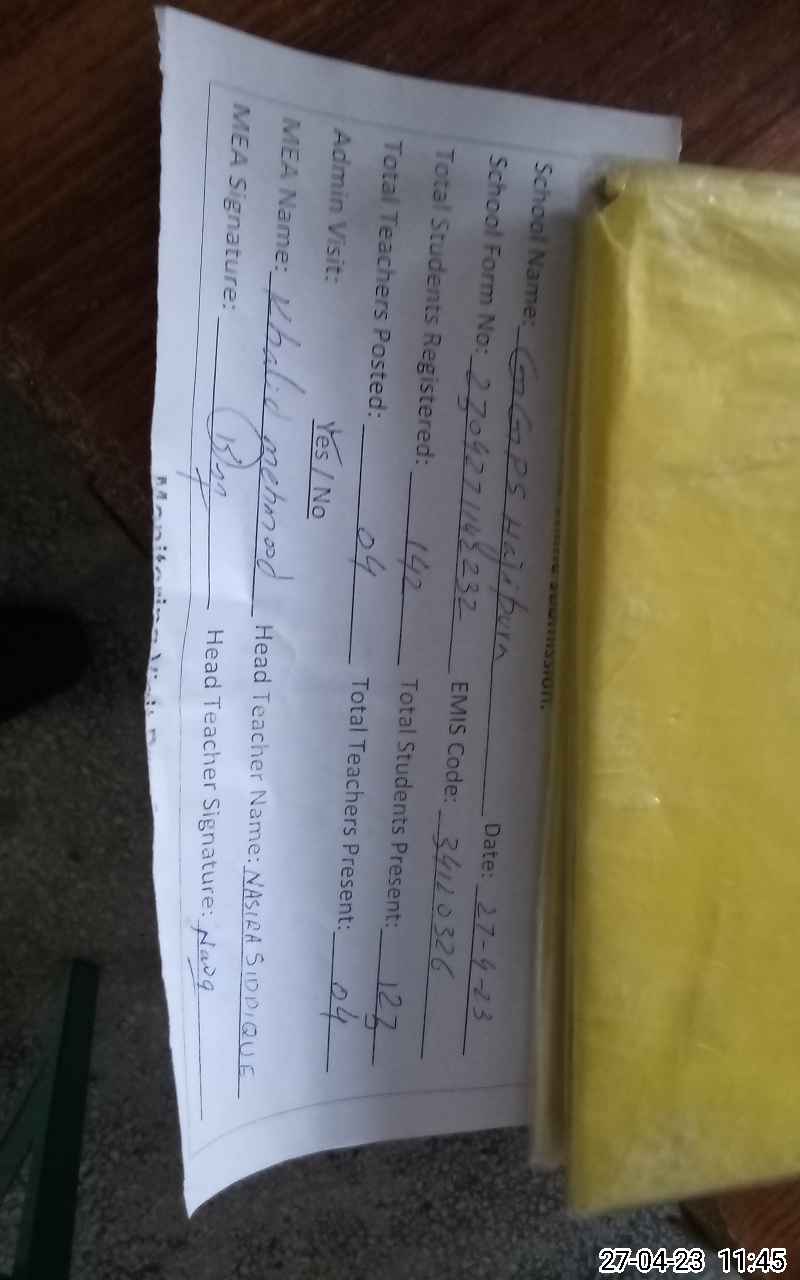 submission.
School Name: GGPS Hajipura Date: 27-4-23
School Form No: 230427114232 EMIS Code: 34120326
Total Students Registered: 142 Total Students Present: 123
Total Teachers Posted: 04 Total Teachers Present: 04
Admin Visit: Yes / No
MEA Name: Khalid mehmood Head Teacher Name: NASIRA SIDDIQUE
MEA Signature: Head Teacher Signature:
27-04-23 11:45